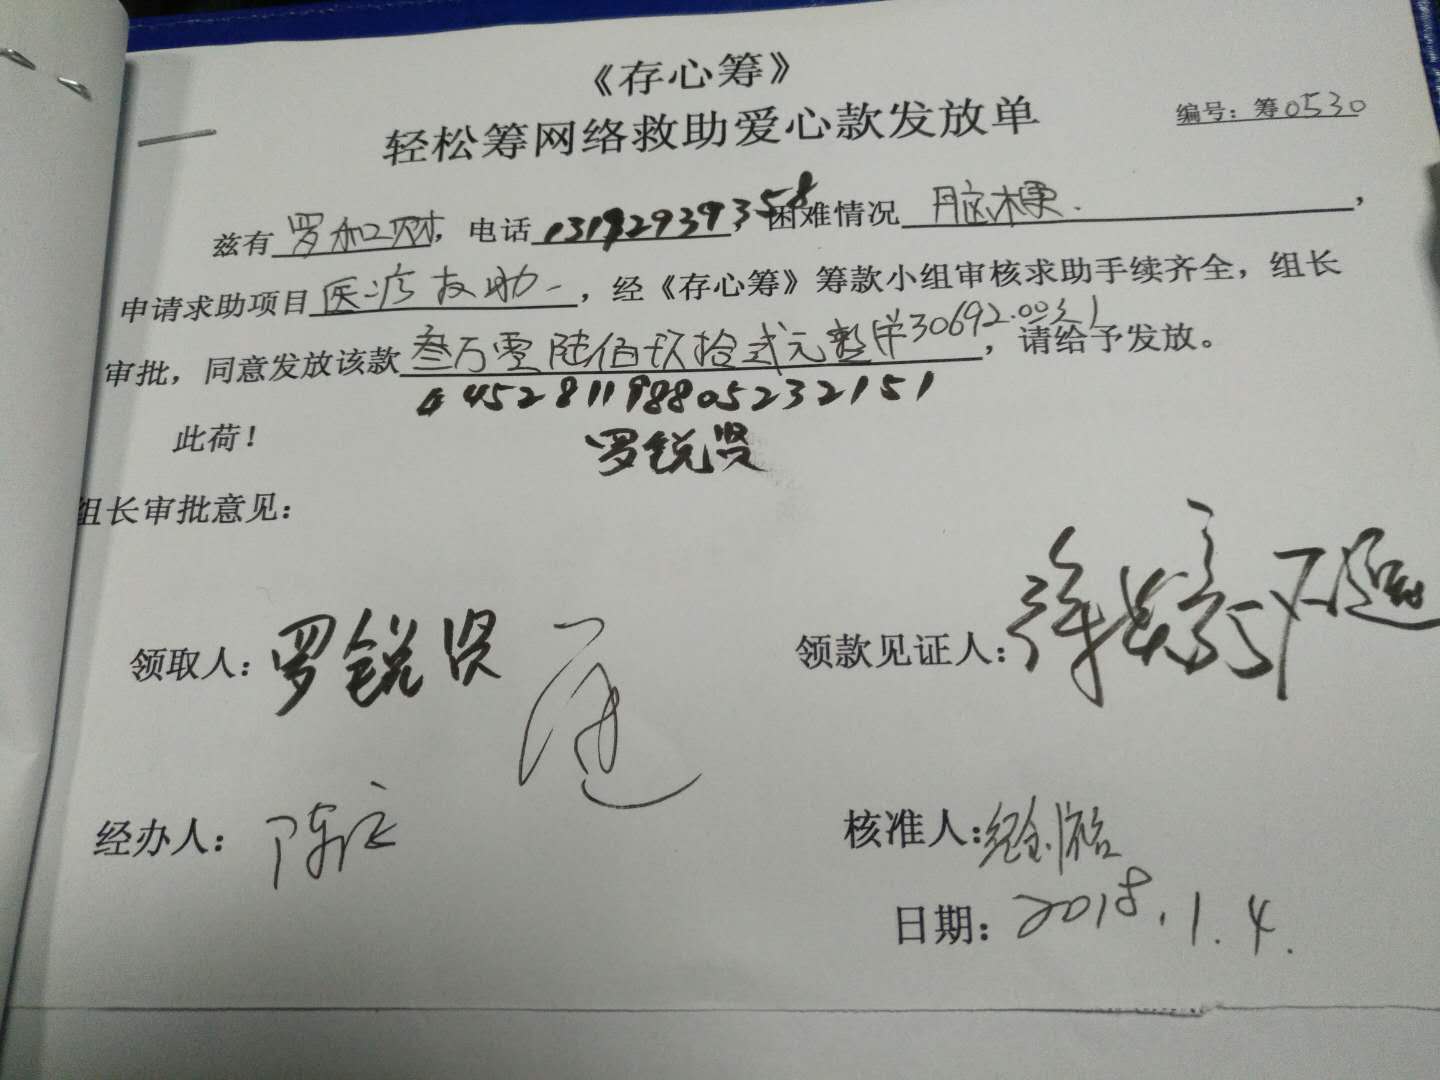 《存心筹》
轻松筹网络救助爱心款发放单
编号：筹0530
兹有罗和财，电话13192939358，困难情况脑梗.，
申请求助项目医疗救助，经《存心筹》筹款小组审核求助手续齐全，组长
审批，同意发放该款叁万零陆佰玖拾贰元整(¥30692.00元)，请给予发放。
445281198805232151
此荷！
罗锐贤
组长审批意见：
领取人：罗锐贤
领款见证人：
经办人：陈
核准人：
日期：2018.1.4.